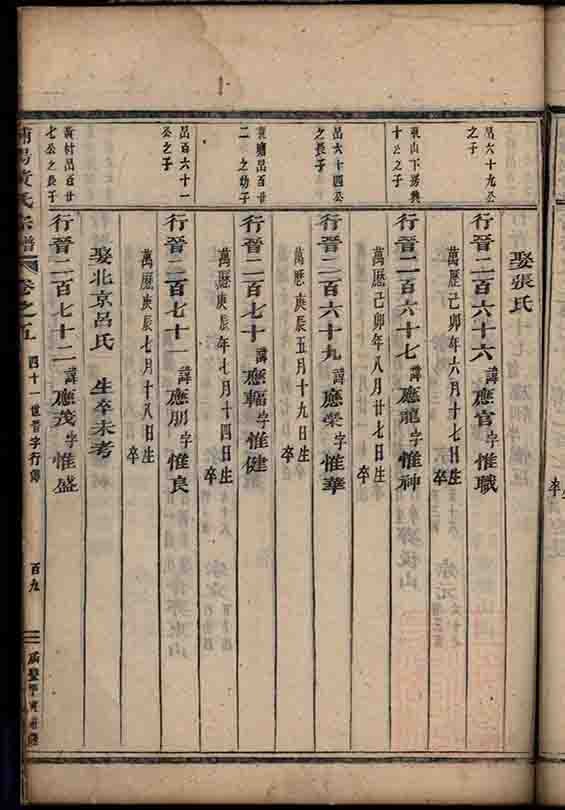 娶張氏
呂六十九公之子
行晉二百六十六諱應官字惟職
萬歷己卯年六月十七日生
卒
東山下房與十公之子
行晉二百六十七諱應龍字惟神
萬歷己卯年八月廿七日生
卒
呂六十四公之長子
行晉二百六十九諱應榮字惟華
萬歷庚辰五月十九日生
卒
東塘呂百廿二之幼子
行晉二百七十諱應輻字惟健
萬歷庚辰年七月十四日生
卒
呂百六十一公之子
行晉二百七十一諱應朋字惟良
萬歷庚辰七月十八日生
卒
娶北京呂氏 生卒未考
黃村呂百廿七公之長子
行晉二百七十二諱應茂字惟盛
浦陽黃氏宗譜 卷之五 四十一世晉字行傳 百九